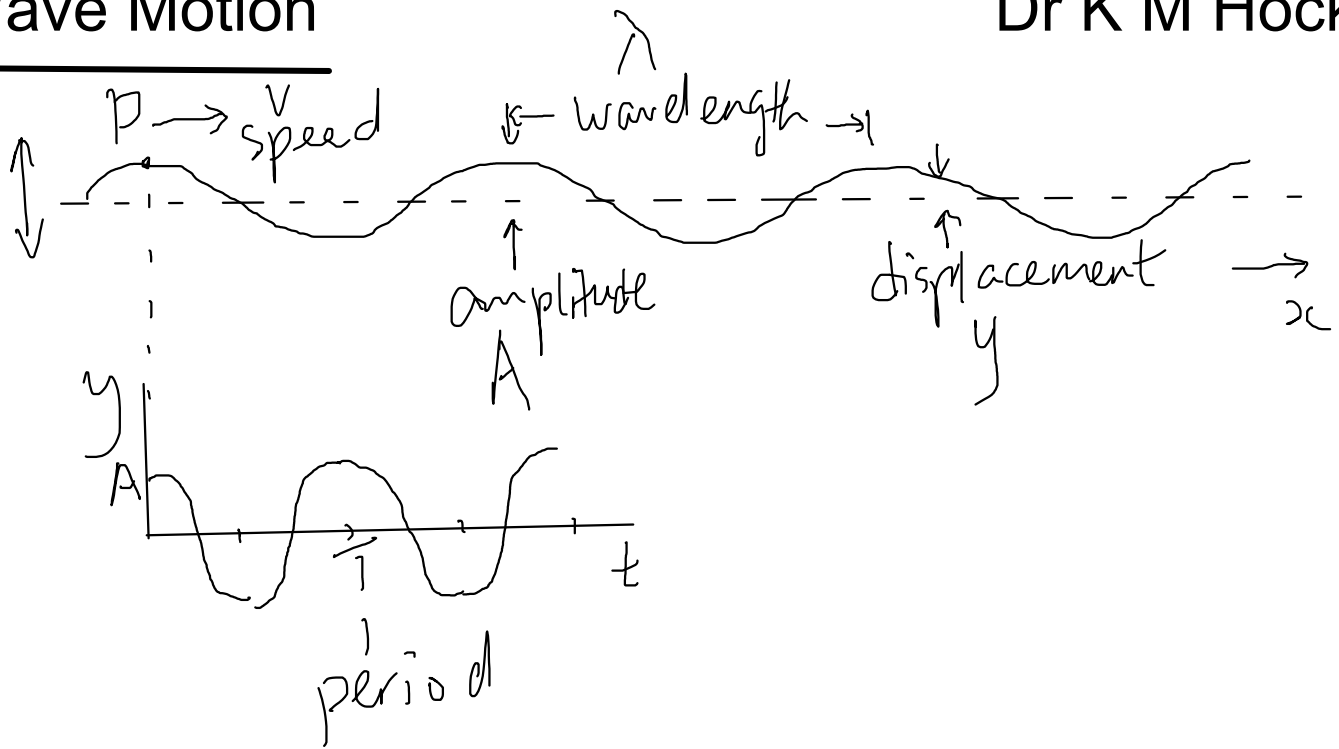 ave Motion
Dr K M Hock
λ
P → v
speed
wavelength
amplitude
A
displacement
y
x
y
A
T
t
period